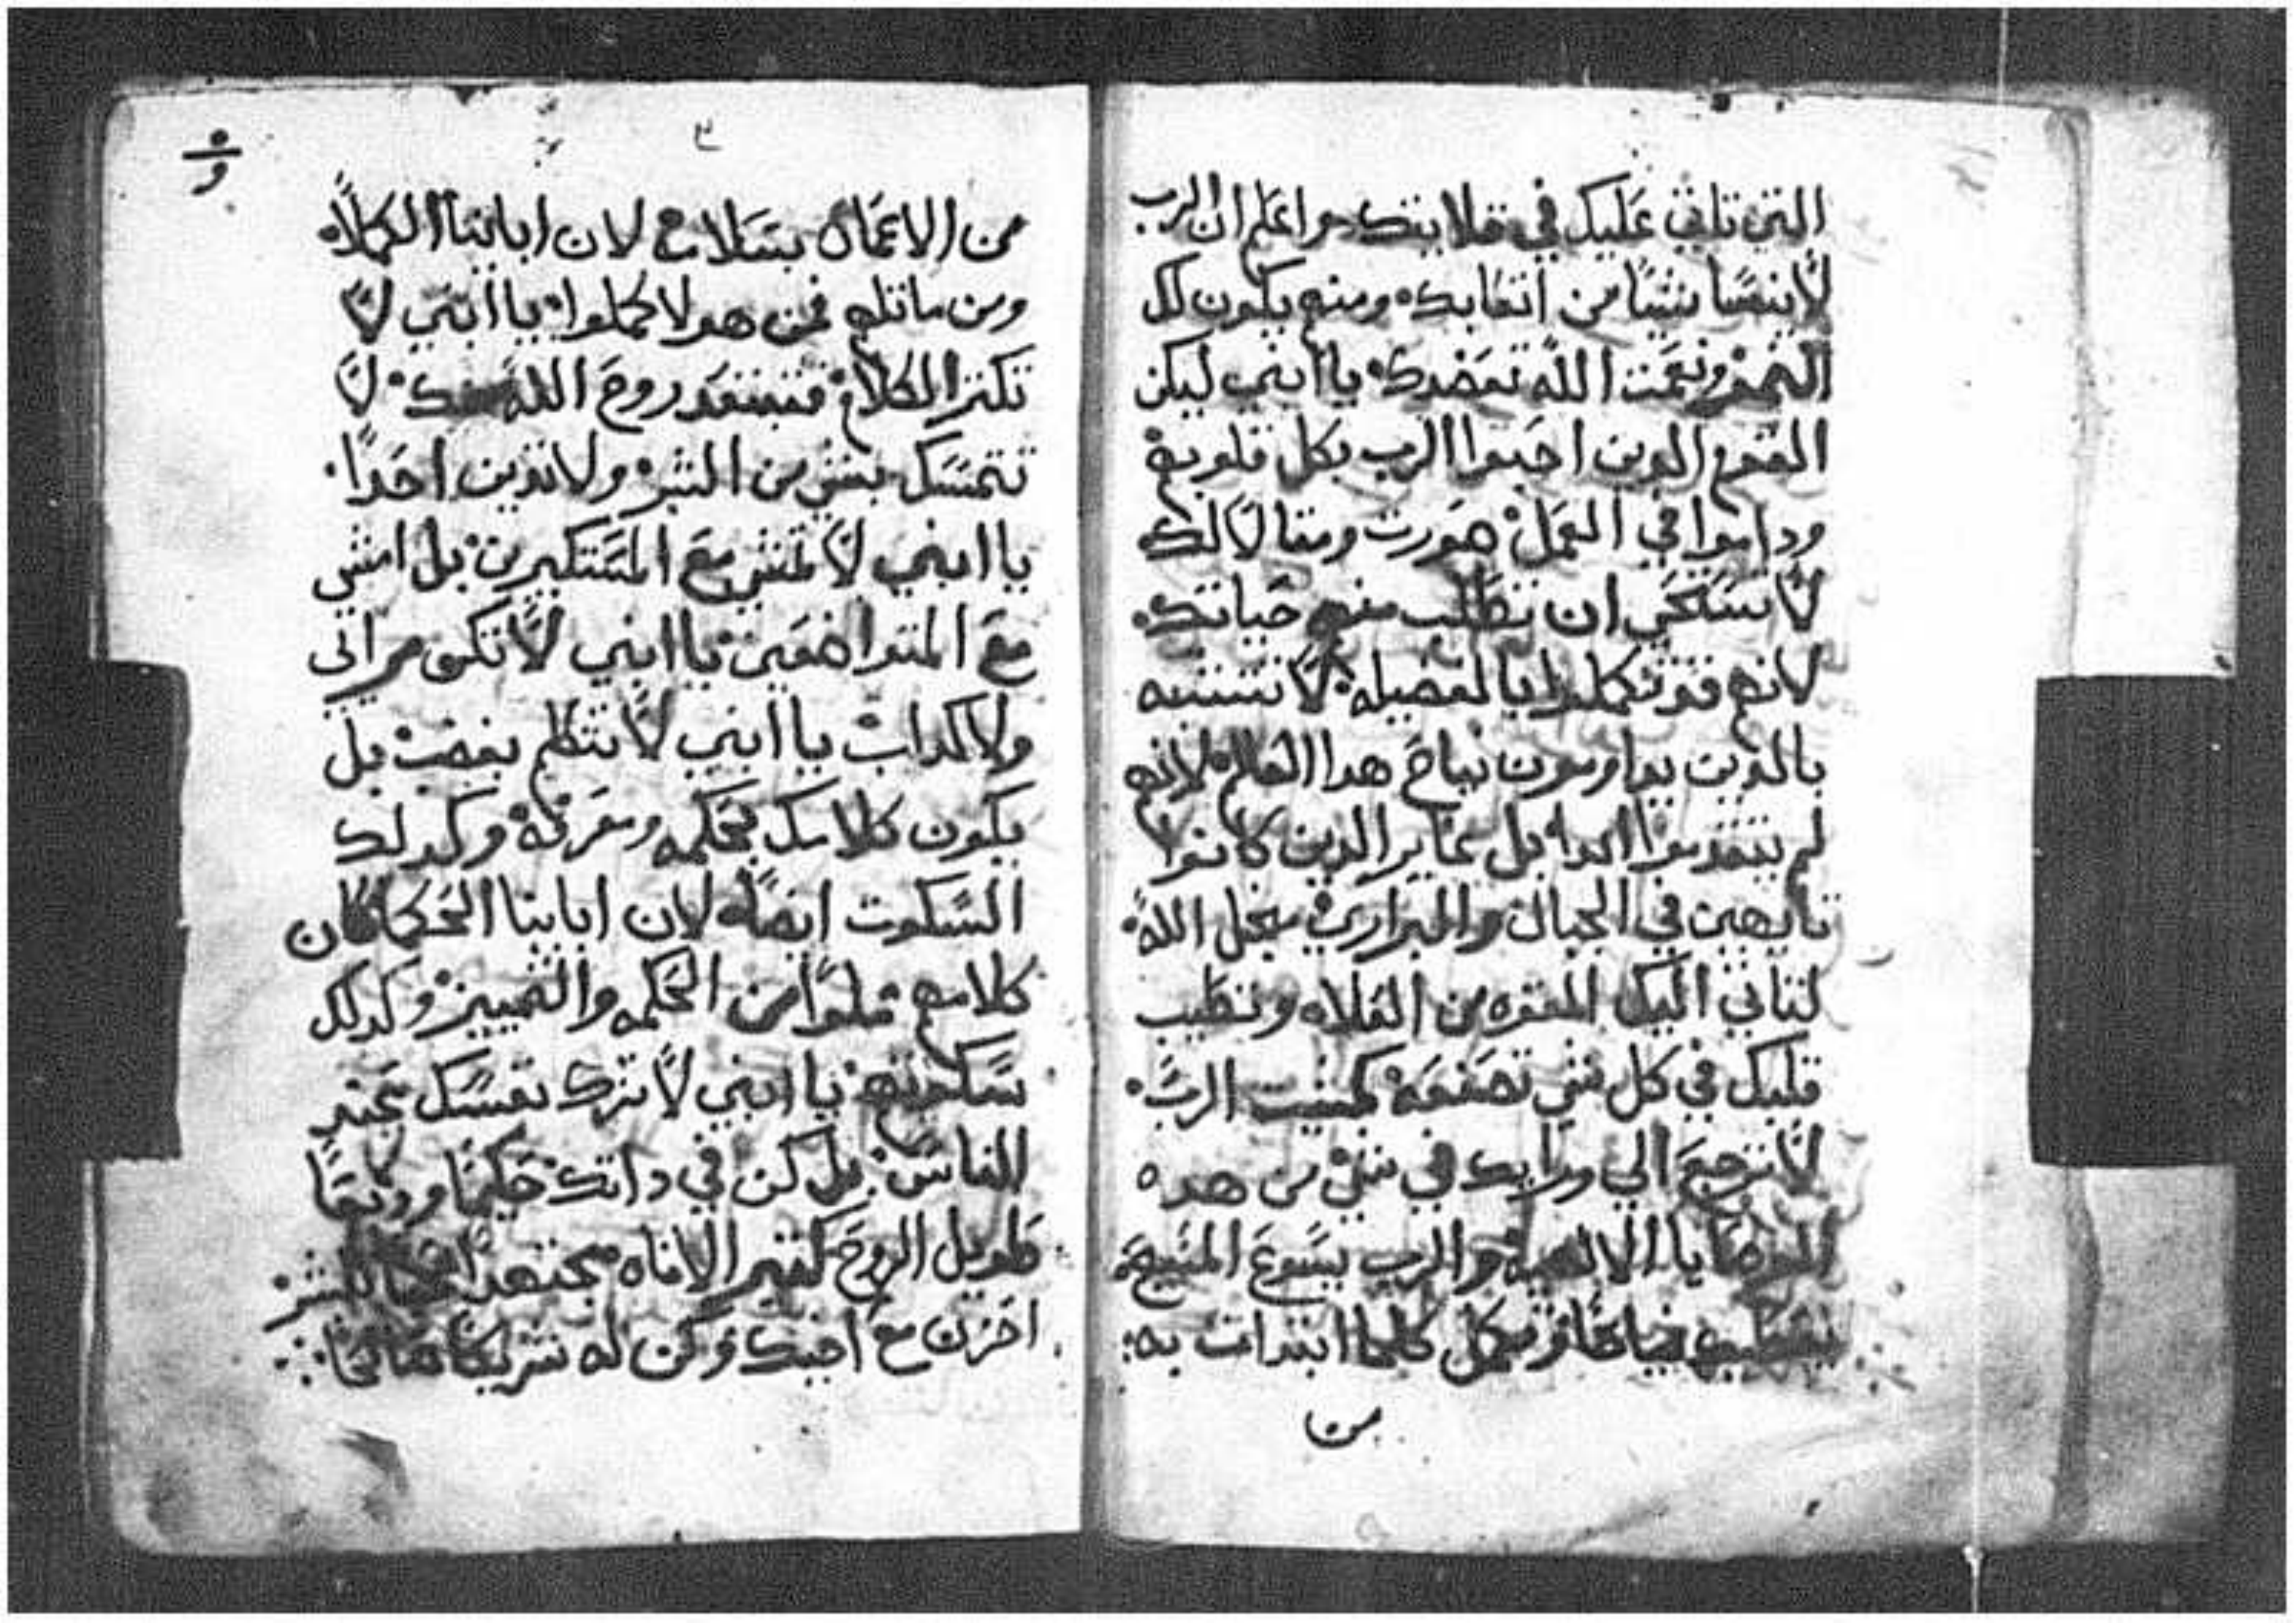 التي تاتي عليك في قلايتك واعلم ان الرب
لا ينسا شيًا من اتعابك ومنه يكون لك
النمو ونعمت الله تعضدك يا ابني ليكن
القوم الدين احبوا الرب بكل قلوبهم
وداموا في العمل صورت ومثالاً لك
لا تستحي ان تطلب منهم حياتك
لانهم قد تكملوا بالفضيله لا تتشبه
بالدين يداومون نياح هدا العالم لانهم
لم يتقدموا ابدا بل غاير الدين كانوا
تايهين في الجبال والبراري من اجل الله
لتاتي اليك القوه من العلاه وتطيب
قلبك في كل شي تصنعه كمشيت الرب
لا ترجع الي ورايك في شي من هده
الوصايا الالاهيه والرب يسوع المسيح
كلما ابتدات به
من
٣
من الاعمال بسلام لان اباينا الكملا
ومن ماتلهم فمن هولا كملوا يا ابني لا
تكتر الكلام فيبتعد روح الله منك لا
تتمسك بشي من الشر ولا تدين احدًا
يا ابني لا تمشي مع المستكبرين بل امشي
مع المتواضعين يا ابني لا تكن مراي
ولا كداب يا ابني لا تتكلم بغضب بل
يكون كلامك بحكمه ومعرفة وكدلك
السكوت ايضًا لان اباينا الحكما كان
كلامهم مملوا من الحكمه والتمييز وكدلك
سكوتهم يا ابني لا تترك نفسك عند
الناس بل كن في داتك حكيمًا وديعًا
طويل الروح كتير الاناه مجتهدًا
احزن مع اخيك وكن له شريكًا صالحًا